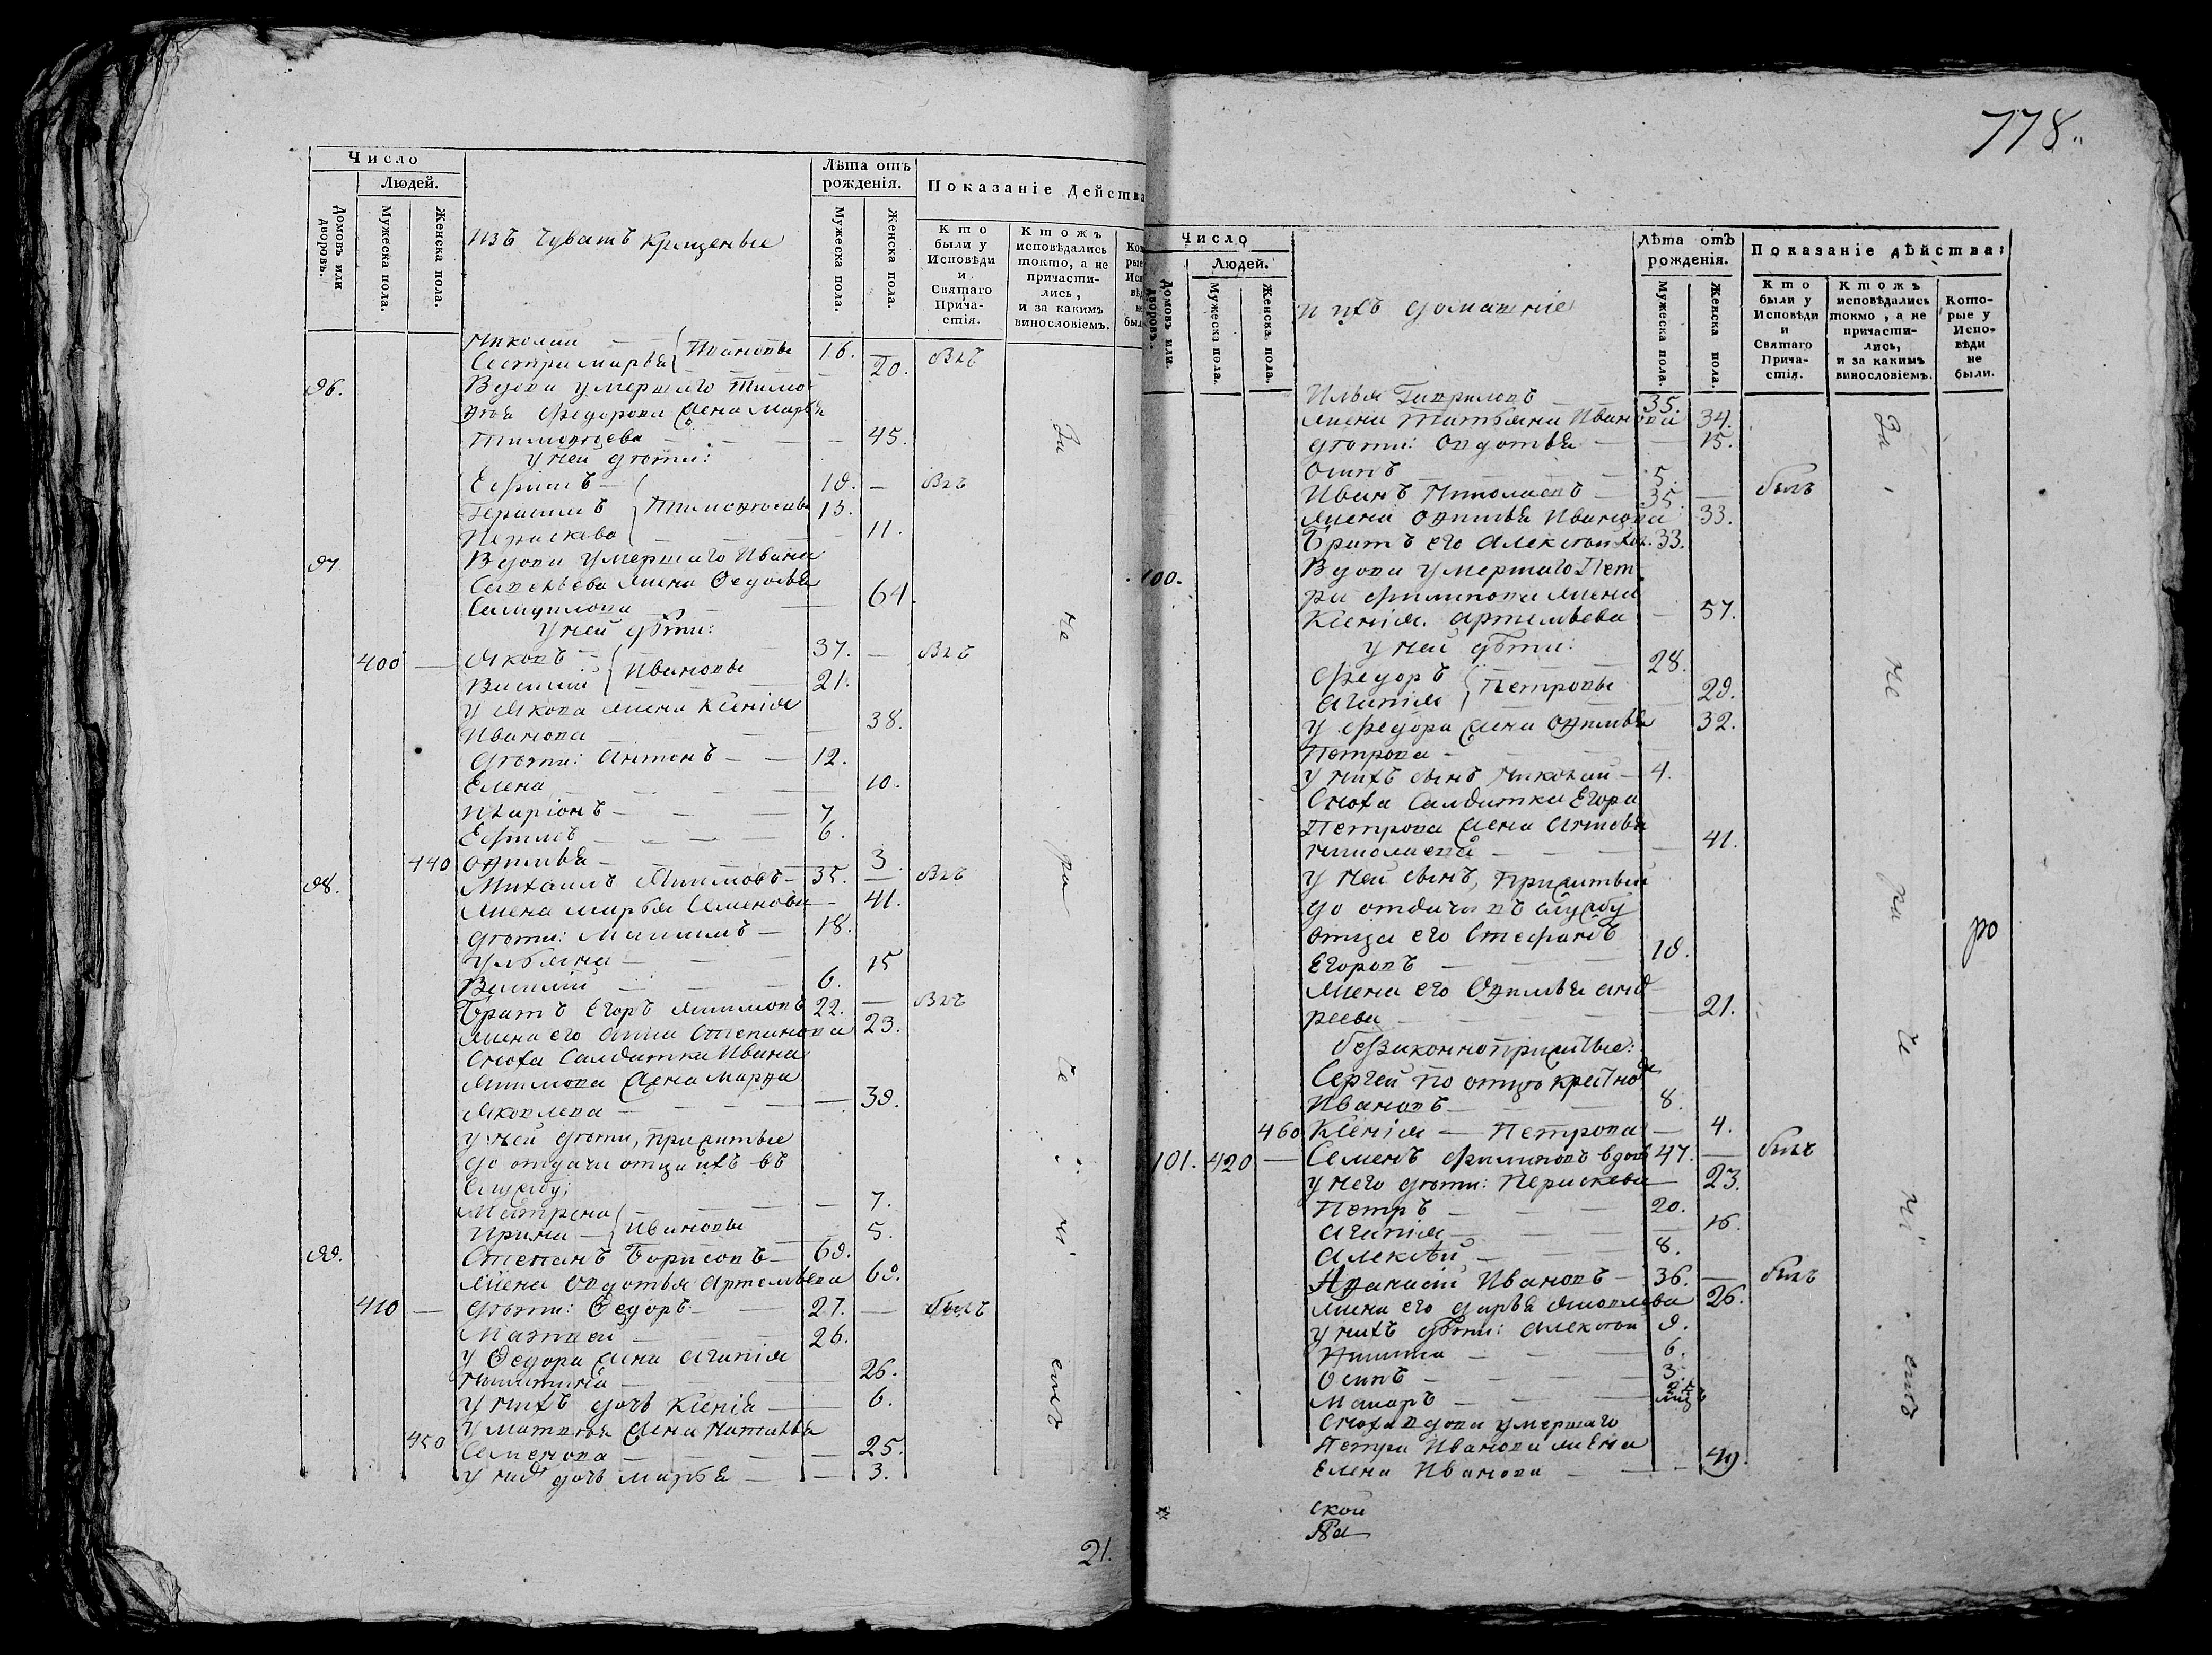 Число
Людей.
Домовъ или дворовъ.
Мужеска пола.
Женска пола.
Лѣта отъ рожденія.
Мужеска пола.
Женска пола.
Показаніе Дейст
Кто были у Исповѣди и Святаго Прича-стія.
Ктожъ исповѣдались токто, а не причасти-лись, и за какимъ винословіемъ.
изъ Чувашъ крещеные
Николай — — 16. —
Сестра Марья } Ивановы 20. Въ
96. Вдова умершаго Тимо
фея Федорова жена Марья
Тимофеева — 45.
у ней дѣти:
Ефимъ — 19. — Въ
Герасимъ } Тимофеевы 13.
Пераскева — 11.
97 Вдова умершаго Ивана
Савельева жена Федосья
Самуилова — 64.
у ней дѣти:
400 — Яковъ — 37. — Въ
Василий } Ивановы 21.
у Якова жена Ксенія
Иванова — 38.
дѣти: Антонъ — — 12.
Елена — 10.
Иларіонъ — 7
Ефимъ — 6.
440 Офимья — 3
98. Михаилъ Якимовъ — 35. — Въ
жена Марья Семенова — 41.
дѣти: Максимъ — 18.
Ульяна — 15
Василій — 6.
Братъ Егоръ Якимовъ 22. — Въ
жена его Анна Степанова 23.
Сноха Салдатка Ивана
Якимова жена Марфа
Яковлева — 39.
у ней дѣти, прижитые
до отдачи отца ихъ въ
Службу:
Матрена — 7.
Ирина — } Ивановы 5.
99. Степанъ Борисовъ — 69.
жена Овдотья Артемьева 69.
410 — дѣти: Федоръ — 27. — былъ
Матвей — 26.
у Федора жена Агапія
Никитина — 26.
у нихъ дочь Ксенія — 6.
у Матвея жена Наталья
450 Семенова — 25.
у них дочь Марья — — 3.
За не ра че ні емъ
21.
778.
Число
Людей.
Домовъ или дворовъ.
Мужеска пола.
Женска пола.
Лѣта отъ рожденія.
Мужеска пола.
Женска пола.
Показаніе дѣйства:
Кто были у Исповѣди и Святаго Прича-стія.
Ктожъ исповѣдались токмо, а не причасти-лись, и за какимъ винословіемъ.
Кото-рые у Испо-вѣди не были.
и ихъ домашніе
Илья Гавриловъ — 35.
жена Татьяна Иванова 34.
дѣти: Овдотья — 15.
Осипъ — 5.
Иванъ Николаевъ — 35. — былъ
жена Офимья Иванова 33.
Братъ его Алексѣй 33.
100. Вдова умершаго Пет
ра Филипова жена
Ксенія Артемьева — 57.
у ней дѣти:
Федоръ 28.
Агапія } Петровы 29.
у Федора жена Офимья 32.
Петрова —
у нихъ сынъ Николай — 4.
Сноха Салдатка Егора
Петрова жена
Николаева — 41.
у ней сынъ, прижитый
до отдачи въ службу
отца его Стефанъ
Егоровъ — 19.
жена его Офимья Анд
реева — 21.
беззаконноприжитые:
Сергей по отцѣ крестном
Ивановъ — 8.
460 Ксенія — Петрова — 4.
101. 420 — Семенъ Филиповъ вдовъ 47. — былъ
у него дѣти: Пераскева — 23.
Петръ — 20.
Агапія — 16.
Алексѣй — 8.
Афанасій Ивановъ — 36. — былъ
жена его Дарья Яковлева 26.
у нихъ дѣти: Алексѣй 9.
Никита — 6.
Осипъ — 3.
Макаръ —
Сноха вдова умершаго
Петра Иванова жена
Елена Иванова — 49.
За не ра че ні емъ
ро
ской